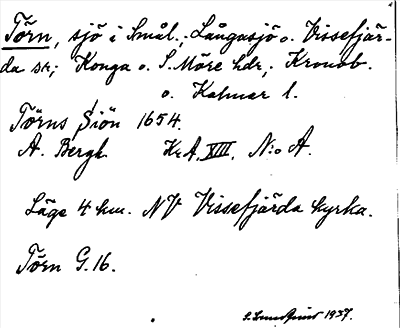 Törn, sjö i Smål.; Långasjö o. Vissefjär-
da sn; Konga o. S. Möre hdr; Kronob.
o. Kalmar l.
Törns Siön 1654.
A. Bergh. Kr. A. XIII. N:o A.
Läge 4 km. NV Vissefjärda kyrka.
Törn G. 16.
1937.